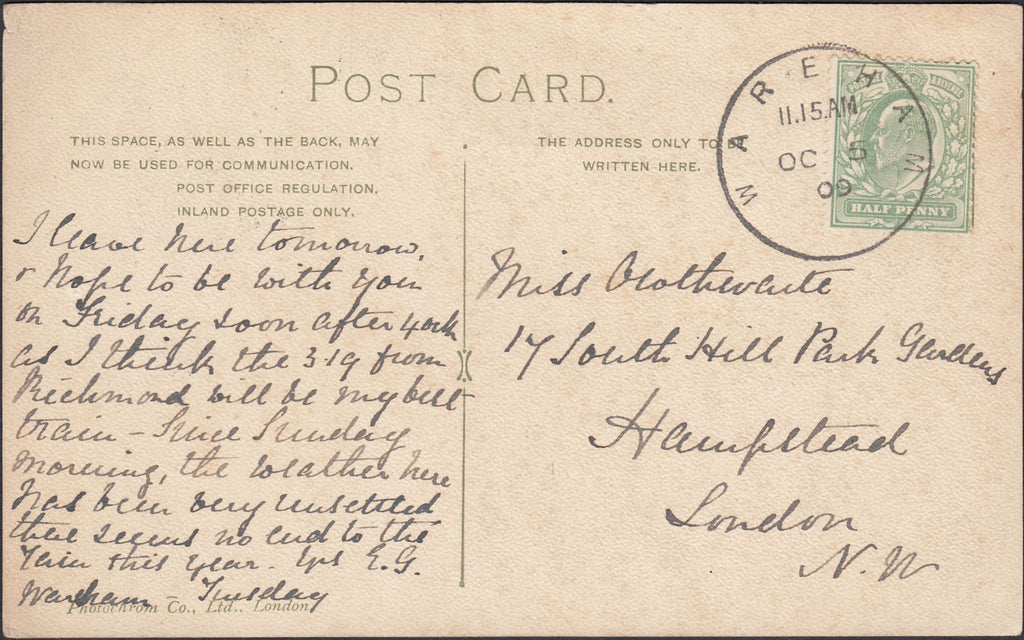 POST CARD.
THIS SPACE, AS WELL AS THE BACK, MAY
NOW BE USED FOR COMMUNICATION.
POST OFFICE REGULATION.
INLAND POSTAGE ONLY.
THE ADDRESS ONLY TO BE
WRITTEN HERE.
WAREHAM
11.15.AM
OC 5
09
HALF PENNY
I leave here tomorrow,
& hope to be with you
on Friday soon after 4 ock
as I think the 3.19 from
Richmond will be my best
train – Since Sunday
morning, the weather here
has been very unsettled
there seems no end to the
rain this year. Yrs E.G.
Wareham – Tuesday
Photochrom Co., Ltd., London
Miss
17 South Hill Park Gardens
Hampstead
London
N.W